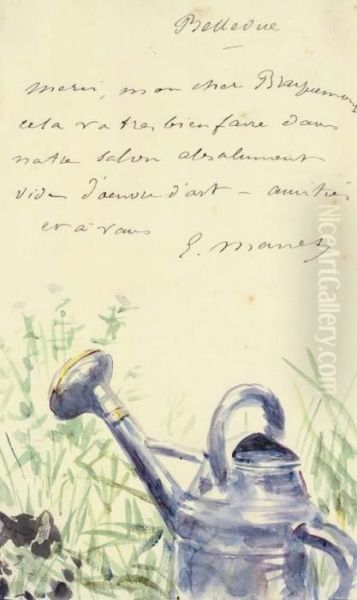 Bellevue
merci, mon cher Bracquemond
cela va très bien faire dans
notre salon absolument
vide d'oeuvre d'art – amitiés
et à vous
E. Manet
NiceArtGallery.com